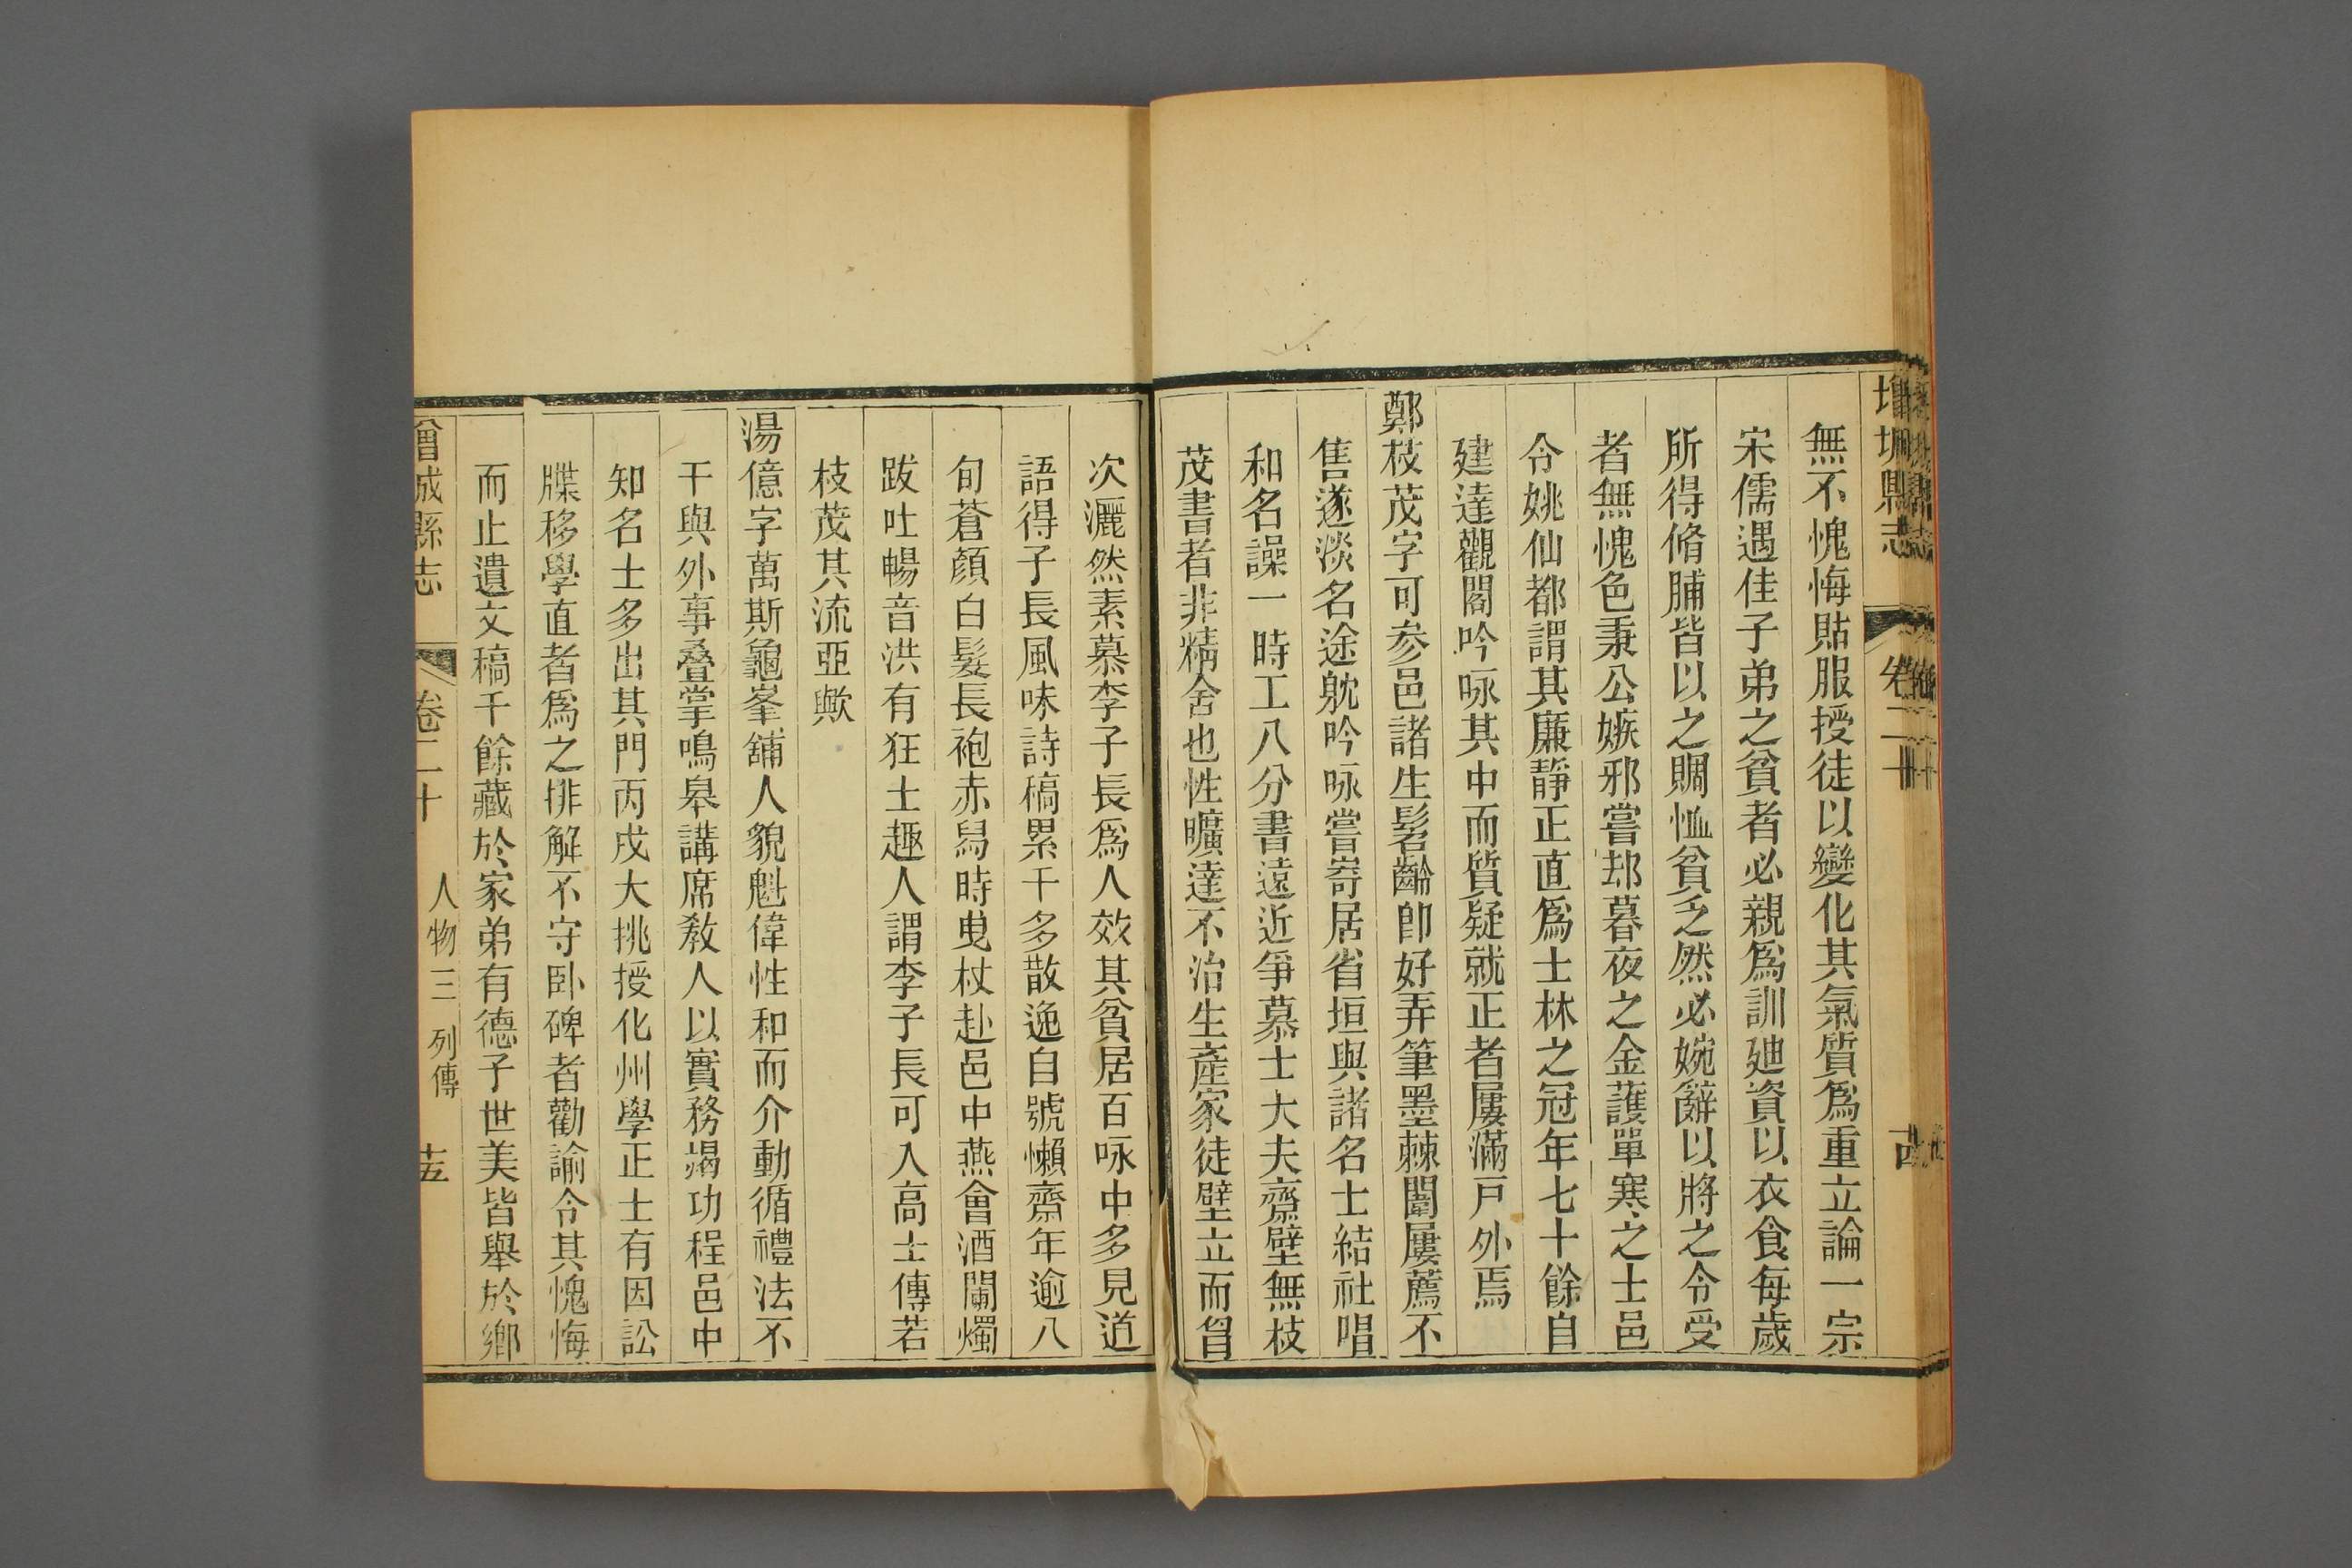 增城縣志
卷二十
無不愧悔貼服授徒以變化其氣質爲重立論一宗
宋儒遇佳子弟之貧者必親爲訓廸資以衣食每歲
所得脩脯皆以之賙恤貧乏然必婉辭以將之令受
者無愧色秉公嫉邪嘗却暮夜之金護單寒之士邑
令姚仙都謂其廉靜正直爲士林之冠年七十餘自
建達觀閣吟咏其中而質疑就正者屢滿戸外焉
鄭枝茂字可參邑諸生髫齡卽好弄筆墨棘闈屢薦不
售遂淡名途躭吟咏嘗寄居省垣與諸名士結社唱
和名譟一時工八分書遠近爭慕士大夫齋壁無枝
茂書者非精舍也性曠達不治生產家徒壁立而胷
次灑然素慕李子長爲人效其貧居百咏中多見道
語得子長風味詩稿累千多散逸自號懶齋年逾八
旬蒼顏白髮長袍赤舄時曳杖赴邑中燕會酒闌燭
跋吐暢音洪有狂士趣人謂李子長可入高士傳若
枝茂其流亞歟
湯億字萬斯龜峯舖人貌魁偉性和而介動循禮法不
干與外事叠掌鳴皋講席敎人以實務竭功程邑中
知名士多出其門丙戌大挑授化州學正士有因訟
牒移學直者爲之排解不守卧碑者勸諭令其愧悔
而止遺文稿千餘藏於家弟有德子世美皆舉於鄉
增城縣志
卷二十
人物三 列傳
十五